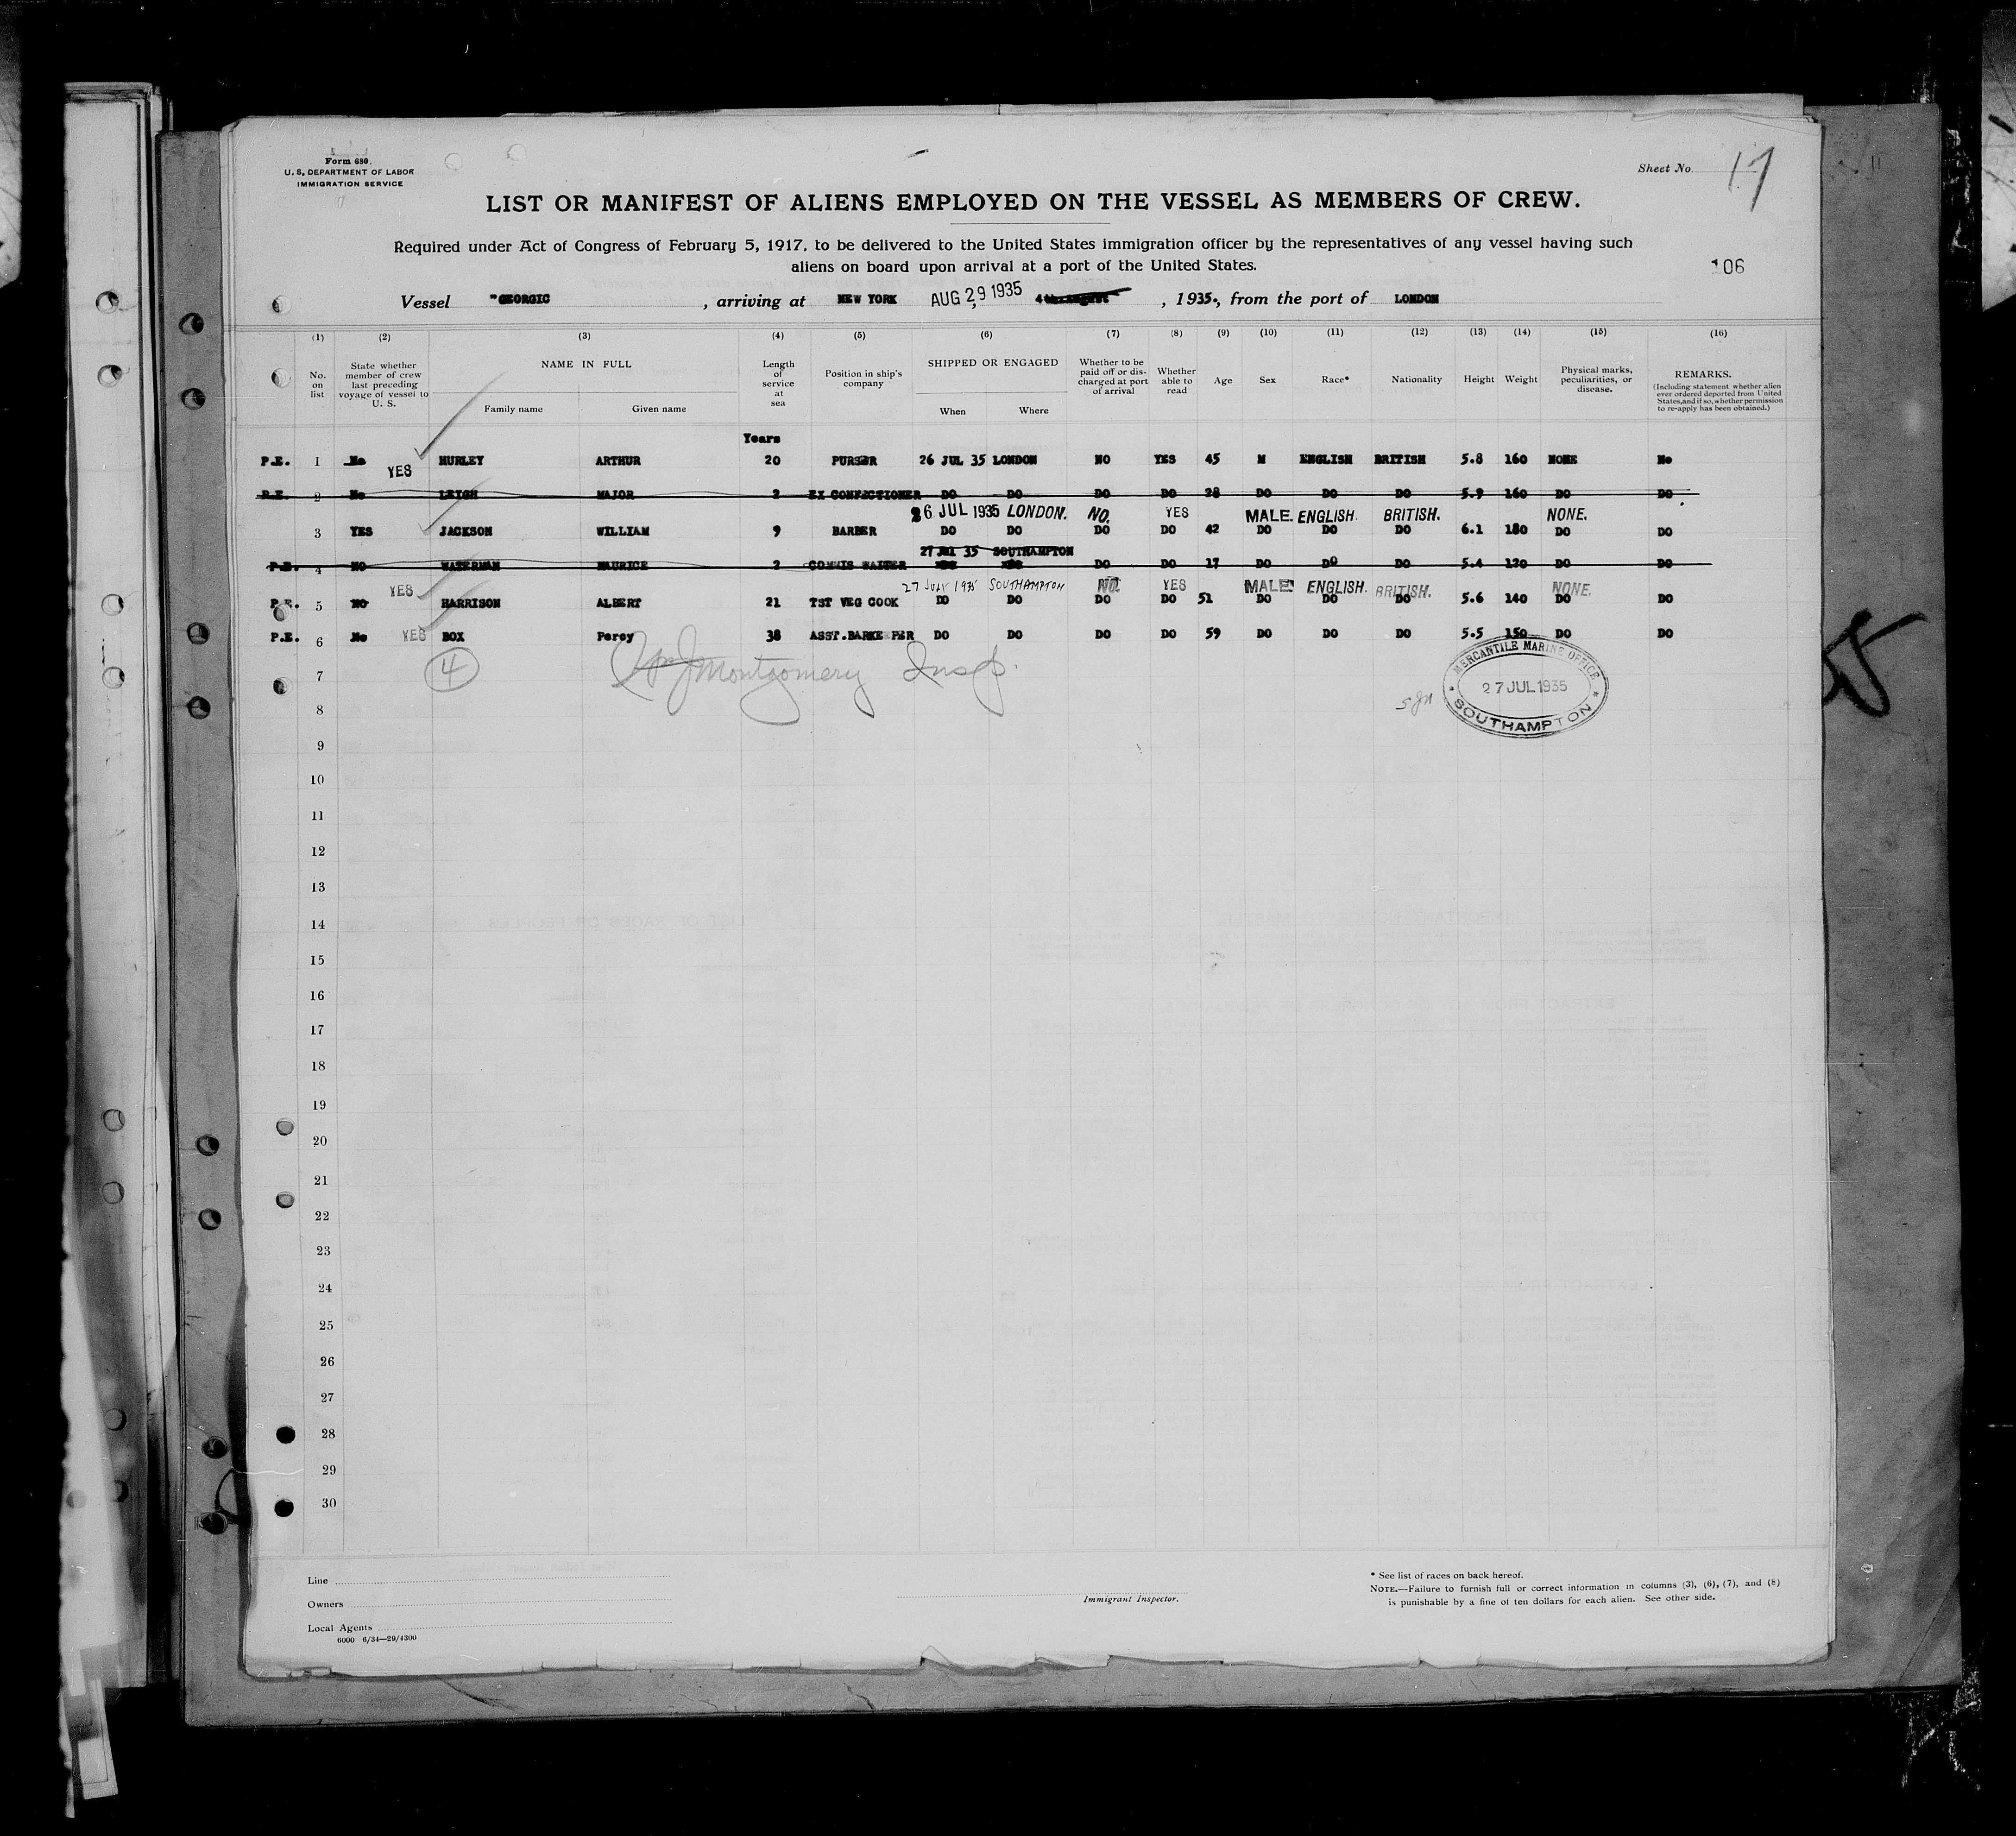 Form 680.
U. S. DEPARTMENT OF LABOR
IMMIGRATION SERVICE
Sheet No. 17
LIST OR MANIFEST OF ALIENS EMPLOYED ON THE VESSEL AS MEMBERS OF CREW.
Required under Act of Congress of February 5, 1917, to be delivered to the United States immigration officer by the representatives of any vessel having such
aliens on board upon arrival at a port of the United States.
106
Vessel "GEORGIC , arriving at NEW YORK AUG 29 1935 4th August , 1935., from the port of LONDON
(1) (2) (3) (4) (5) (6) (7) (8) (9) (10) (11) (12) (13) (14) (15) (16)
No. on list
State whether member of crew last preceding voyage of vessel to U. S.
NAME IN FULL
Family name Given name
Length of service at sea
Position in ship's company
SHIPPED OR ENGAGED
When Where
Whether to be paid off or discharged at port of arrival
Whether able to read
Age
Sex
Race*
Nationality
Height
Weight
Physical marks, peculiarities, or disease.
REMARKS.
(Including statement whether alien ever ordered deported from United States, and if so, whether permission to re-apply has been obtained.)
Years
P.E. 1 No YES HURLEY ARTHUR 20 PURSER 26 JUL 35 LONDON NO YES 45 M ENGLISH BRITISH 5.8 160 NONE No
P.E. 2 No LEIGH MAJOR 2 EX CONFECTIONER DO DO DO DO 28 DO DO DO 5.9 160 DO DO
26 JUL 1935 LONDON. NO. YES MALE. ENGLISH. BRITISH. NONE.
3 YES JACKSON WILLIAM 9 BARBER DO DO DO DO 42 DO DO DO 6.1 180 DO DO
27 JUL 35 SOUTHAMPTON
P.E. 4 NO WATERMAN MAURICE 2 COMMIS WAITER DO DO 17 DO DO DO 5.4 120 DO DO
YES 27 JULY 1935 SOUTHAMPTON NO. YES MALE ENGLISH. BRITISH. NONE.
P.E. 5 NO HARRISON ALBERT 21 TST VEG COOK DO DO DO DO 51 DO DO DO 5.6 140 DO DO
P.E. 6 No YES BOX Percy 38 ASST.BARKEEPER DO DO DO DO 59 DO DO DO 5.5 150 DO DO
7 4 Wm J Montgomery Insp.
MERCANTILE MARINE OFFICE
27 JUL 1935
SOUTHAMPTON
8
9
10
11
12
13
14
15
16
17
18
19
20
21
22
23
24
25
26
27
28
29
30
Line
Owners
Local Agents
6000 6/34—29/4300
Immigrant Inspector.
* See list of races on back hereof.
NOTE.—Failure to furnish full or correct information in columns (3), (6), (7), and (8)
is punishable by a fine of ten dollars for each alien. See other side.